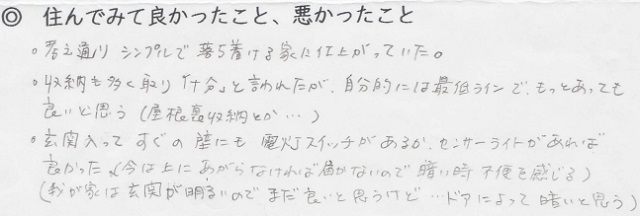 ◎ 住んでみて良かったこと、悪かったこと
。考え通り シンプルで 落ち着ける家に仕上がっていた。
。収納も多く取り「十分」と言われたが、自分的には最低ラインで、もっとあっても
良いと思う（屋根裏収納とか…）
。玄関入って すぐの 壁にも 電灯スイッチがあるが、センサーライトがあれば
良かった。（今は上に あがらなければ届かないので 暗い時 不便を感じる）
（我が家は玄関が明るいので まだ良いと思うけど …ドアによって 暗いと思う）